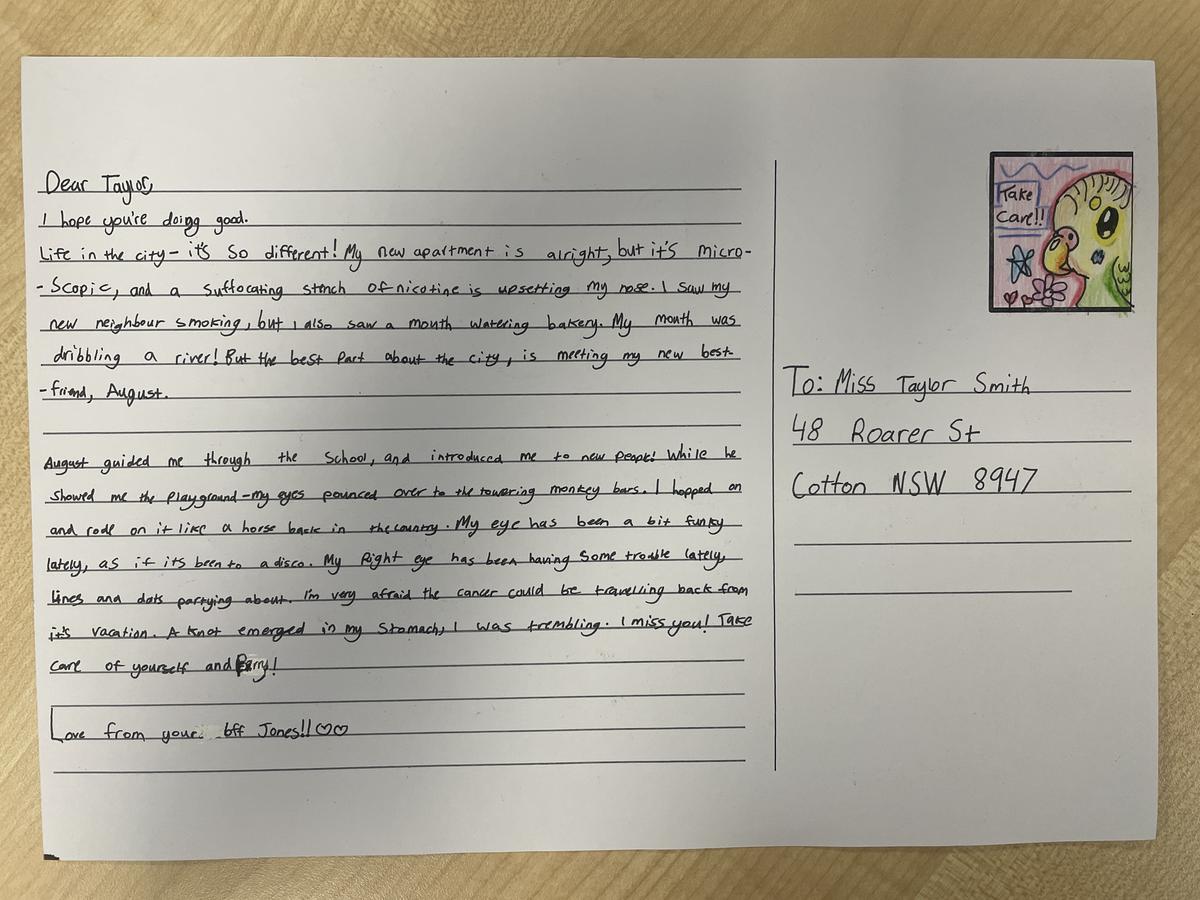 Dear Taylor,
I hope you're doing good.
Life in the city - it's so different! My new apartment is alright, but it's micro-
- Scopic, and a suffocating stench of nicotine is upsetting my nose. I saw my
new neighbour smoking, but I also saw a mouth watering bakery. My mouth was
dribbling a river! But the best part about the city, is meeting my new best-
- friend, August.
August guided me through the School, and introduced me to new people! While he
showed me the playground - my eyes pounced over to the towering monkey bars. I hopped on
and rode on it like a horse back in the country. My eye has been a bit funky
lately, as if its been to a disco. My Right eye has been having some trouble lately,
lines and dots partying about. I'm very afraid the cancer could be travelling back from
it's vacation. A knot emerged in my stomach, I was trembling. I miss you! Take
care of yourself and Perry!
Love from your bff Jones!! ♡♡
Take
Care!!
To: Miss Taylor Smith
48 Roarer St
Cotton NSW 8947